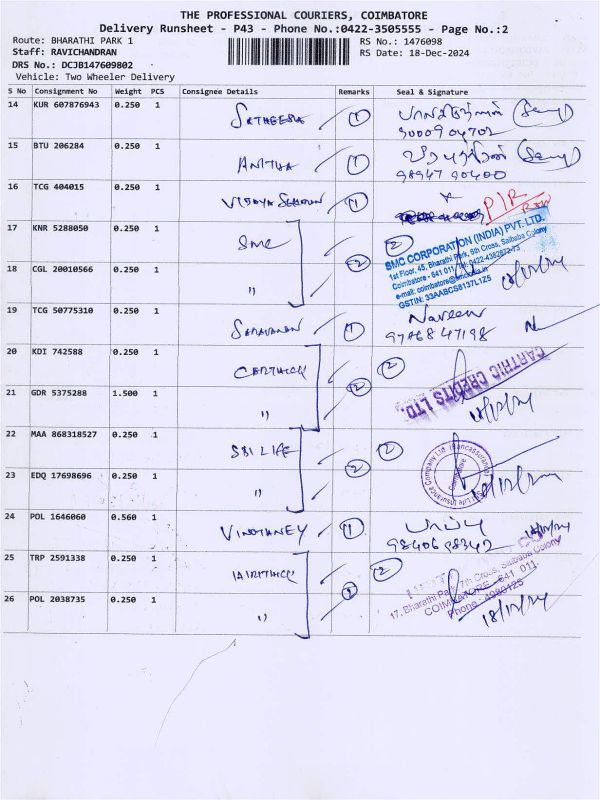 THE PROFESSIONAL COURIERS, COIMBATORE
Delivery Runsheet - P43 - Phone No.:0422-3505555 - Page No.:2
Route: BHARATHI PARK 1
RS No.: 1476098
Staff: RAVICHANDRAN
RS Date: 18-Dec-2024
DRS No.: DCJB147609802
Vehicle: Two Wheeler Delivery
S No Consignment No Weight PCS Consignee Details Remarks Seal & Signature
14 KUR 607876943 0.250 1 1
9000904702
15 BTU 206284 0.250 1 ANITHA 1
98947 90400
16 TCG 404015 0.250 1 VIJAYA 1 P/R
17 KNR 5288050 0.250 1 SMC 2 2
SMC CORPORATION (INDIA) PVT. LTD.
1st Floor, 45, Bharathi Park, 6th Cross, Saibaba Colony
Coimbatore - 641 011
GSTIN: 33AABCS6137L1Z5
18 CGL 20010566 0.250 1 "
19 TCG 50775310 0.250 1 SARAVANAN 1 Naveen
97868 47198
20 KDI 742588 0.250 1 CARTHICK 2 2
CARTHIC CREDITS LTD.
21 GDR 5375288 1.500 1 " 18/12/24
22 MAA 868318527 0.250 1 SBI LIFE 2 2
23 EDQ 17698696 0.250 1 " 18/12/24
24 POL 1646060 0.560 1 1 பாப்பு
98406 98342
25 TRP 2591338 0.250 1 2
17, Bharathi Park, 7th Cross, Saibaba Colony
COIMBATORE - 641 011.
Phone : 4980125
26 POL 2038735 0.250 1 " 18/12/24